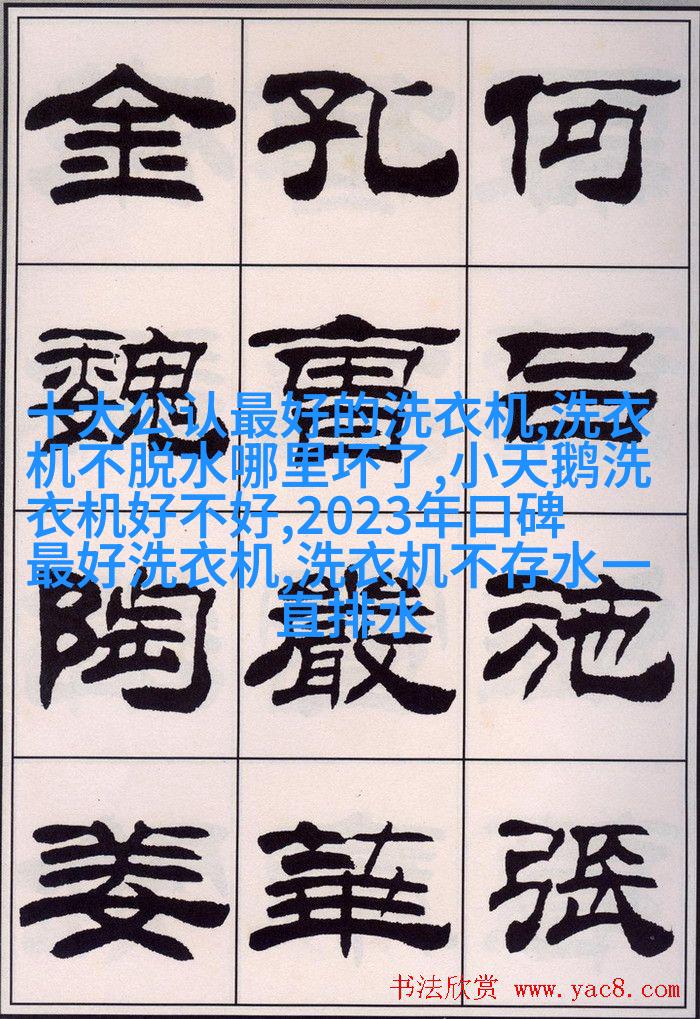 何吕施張
孔曹嚴華
金魏陶姜
十大公认最好的洗衣机,洗衣
机不脱水哪里坏了,小天鹅洗
衣机好不好,2023年口碑
最好洗衣机,洗衣机不存水一
直排水
书法欣赏 www.yac8.com